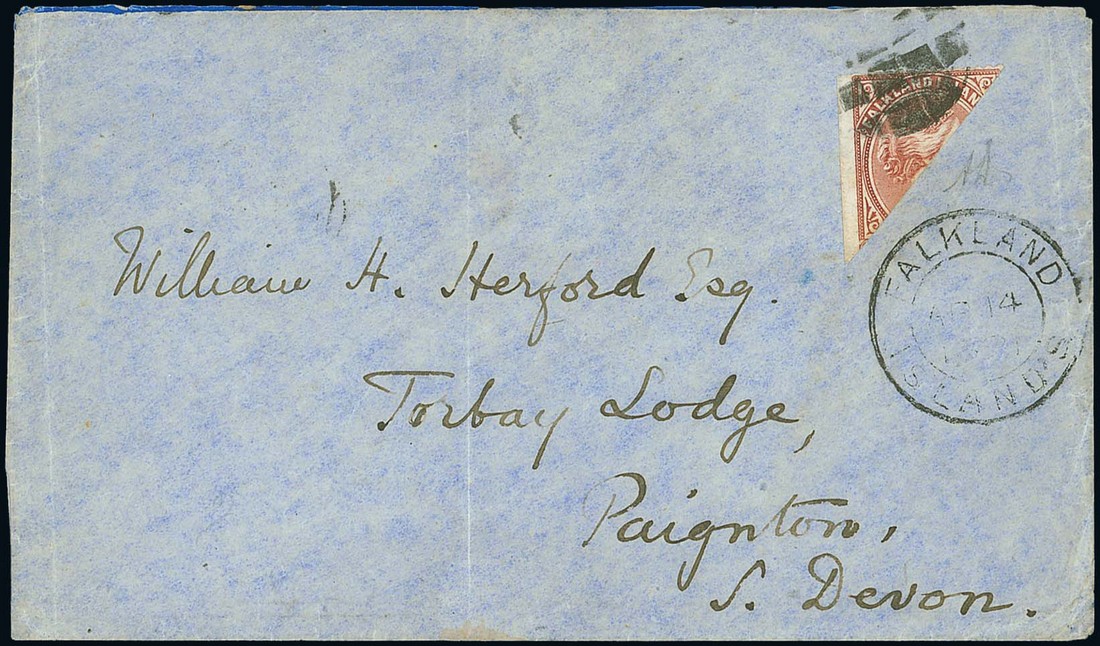 FALKLAND
William H. Herford Esq.
Torbay Lodge,
Paignton,
S. Devon.
FALKLAND ISLANDS
14